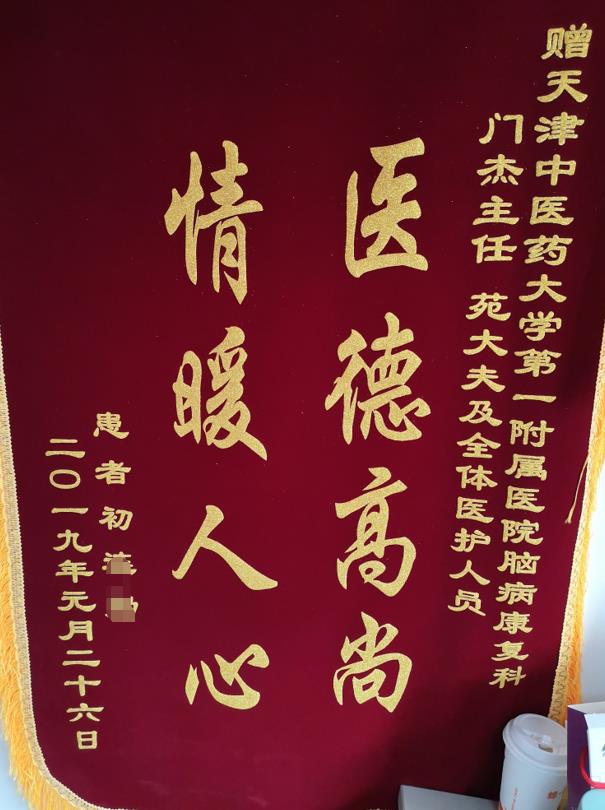 赠天津中医药大学第一附属医院脑病康复科
门杰主任 苑大夫及全体医护人员
医德高尚
情暖人心
患者初
二〇一九年元月二十六日